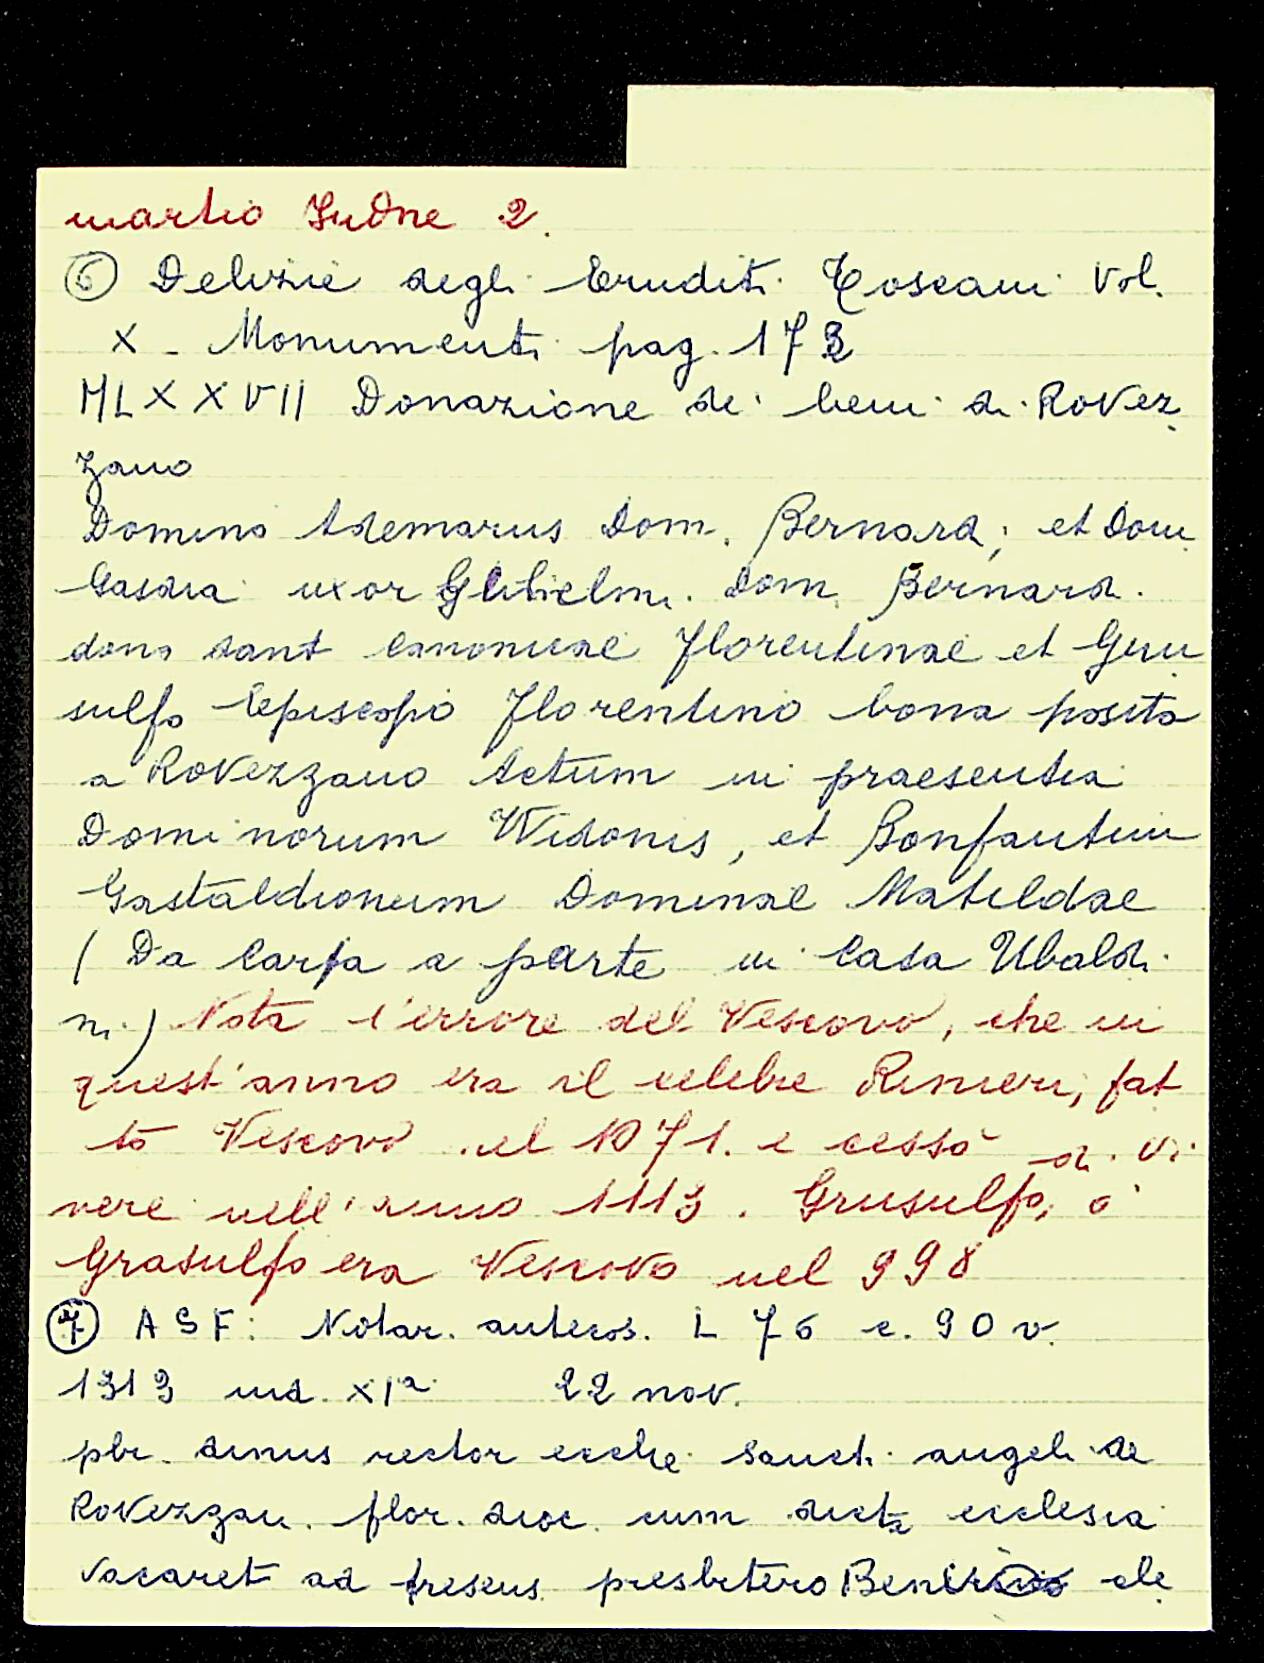 martio Indne 2.
⑥ Delizie degli Eruditi Toscani Vol.
X - Monumenti pag. 173
MLXXVII Donazione di beni di Rovez
zano
Domino Ademarus Dom. Bernardi, et Dom.
Gasdia uxor Gulielmi. Dom. Bernardi.
dono dant Canonicae Florentinae et Gru
sulfo Episcopo Florentino bona posita
a Rovezzano Actum in praesentia
Dominorum Widonis, et Bonfantini
Gastaldionum Dominae Matildae
(Da Carta a parte in Casa Ubaldi
ni.) Nota l'errore del Vescovo, che in
quest'anno era il celebre Rinieri, fat
to Vescovo nel 1071. e cessò di vi
vere nell'anno 1113. Grusulfo, o
Grasulfo era Vescovo nel 998
⑦ ASF: Notar. antecos. L 76 c. 90 v.
1313 ind. XIª 22 nov.
pbr. dinus rector ecche sancti angeli de
Rovezzan. flor. dioc. cum dicta ecclesia
vacaret ad presens presbitero ele